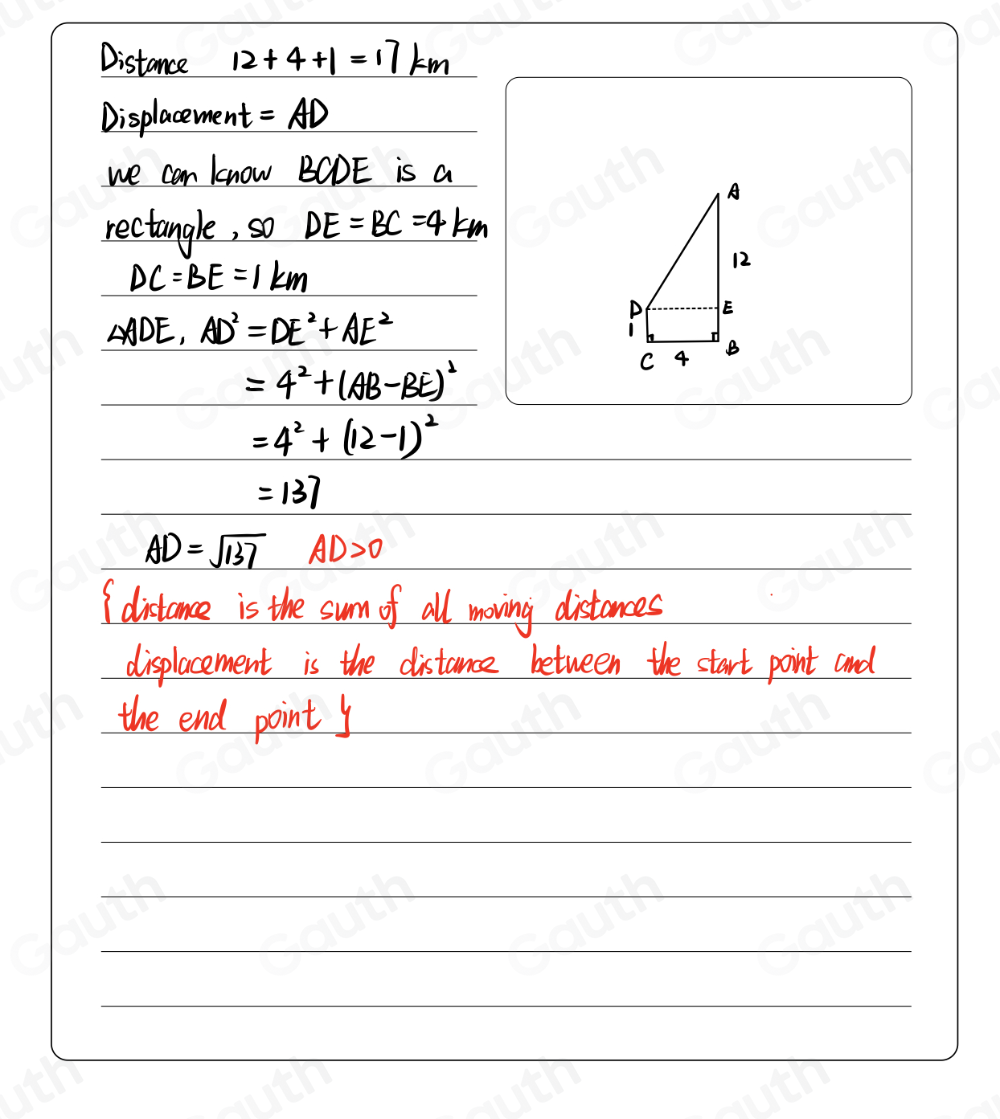 Distance 12+4+1=17 km
Displacement = AD
we can know BCDE is a
rectangle, so DE=BC=4 km
DC=BE=1 km
△ADE, AD²=DE²+AE²
=4²+(AB-BE)²
=4²+(12-1)²
=137
AD=√137 AD>0
{distance is the sum of all moving distances
displacement is the distance between the start point and
the end point}
A
12
D E
1
C 4 B
Gauth